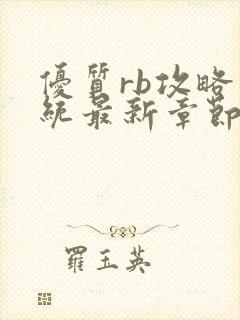 優質rb攻略
統最新章節
羅玉英